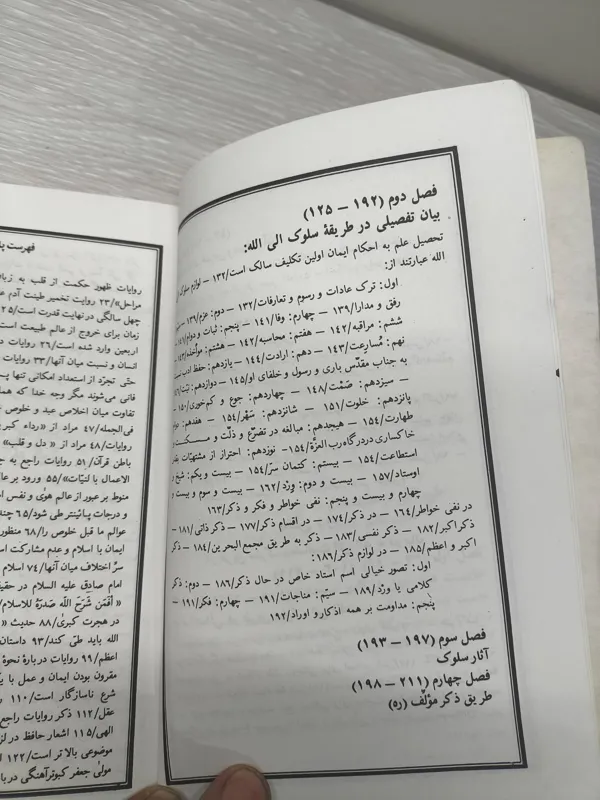 فصل دوم (۱۹۲ – ۱۲۵)
بیان تفصیلی در طریقهٔ سلوک الی الله:
تحصیل علم به احکام ایمان اولین تکلیف سالک است/۱۳۲ – لوازم سلوک
الله عبارتند از:
اول: ترک عادات و رسوم و تعارفات/۱۳۲ – دوم: عزم/۱۳۹
رفق و مدارا/۱۳۹ – چهارم: وفا/۱۴۱ – پنجم: ثبات و دوام/۱۴۱
ششم: مراقبه/۱۴۲ – هفتم: محاسبه/۱۴۲ – هشتم: مؤاخذه/۱۴۲
نهم: مُسارعت/۱۴۳ – دهم: ارادت/۱۴۴ – یازدهم: حفظ ادب
به جناب مقدّس باری و رسول و خلفای او/۱۴۵ – دوازدهم: نیّت
– سیزدهم: صَمْت/۱۴۸ – چهاردهم: جوع و کم‌خوری/۱۵۰ –
پانزدهم: خلوت/۱۵۱ – شانزدهم: سَهَر/۱۵۴ – هفدهم:
طهارت/۱۵۴ – هیجدهم: مبالغه در تضرّع و ذلّت و مسکنت
خاکساری دردرگاه رب العزّة/۱۵۴ – نوزدهم: احتراز از مشتهیات
استطاعت/۱۵۴ – بیستم: کتمان سرّ/۱۵۴ – بیست و یکم: شیخ
اوستاد/۱۵۷ – بیست و دوم: وِرْد/۱۶۲ – بیست و سوم و بیست و
چهارم و بیست و پنجم: نفی خواطر و فکر و ذکر/۱۶۳
در نفی خواطر/۱۶۴ – در ذکر/۱۷۴ – در اقسام ذکر/۱۷۷ – ذکر ذاتی/۱۸۱ –
ذکر اکبر/۱۸۲ – ذکر نفسی/۱۸۳ – ذکر به طریق مجمع البحرین/۱۸۴ – ذکر
اکبر و اعظم/۱۸۵ – در لوازم ذکر/۱۸۶:
اول: تصور خیالی اسم استاد خاص در حال ذکر/۱۸۶ – دوم: ذکر
کلامی یا ورْد/۱۸۹ – سیّم: مناجات/۱۹۱ – چهارم: فکر/۱۹۱ –
پنجم: مداومت بر همه اذکار و اوراد/۱۹۲
فصل سوم (۱۹۷ – ۱۹۳)
آثار سلوک
فصل چهارم (۲۱۱ – ۱۹۸)
طریق ذکر مؤلّف (ره)
فهرست
روایات ظهور حکمت از قلب به
مراحل»/۲۳ روایت تخمیر طینت آدم
چهل سالگی در نهایت قدرت است/۲۵
زمان برای خروج از عالم طبیعت است
اربعین وارد شده است/۲۶ روایات
انسان و نسبت میان آنها/۳۳ روایات
حتّی تجرّد از استعداد امکانی تنها
فانی می‌شوند مگر وجه خدا که
تفاوت میان اخلاص عبد و خلوص
فی‌الجمله/۴۷ مراد از «رداء کبر
روایات/۴۸ مراد از « دل و قلب»
باطن قرآن/۵۱ روایات راجع به
الاعمال با لنیّات»/۵۵ ورود بر
منوط بر عبور از عالم هوٰی و نفس
و درجات پائینتر طی شود/۶۵
عوالم ما قبل خلوص را/۶۸ منظور
ایمان با اسلام و عدم مشارکت
سرّ اختلاف میان آنها/۷۴ اسلام
امام صادق علیه السلام در
« أَفَمَن شَرَحَ اللّه صَدرَهُ للاسلام
در هجرت کبری/۸۸ حدیث
الله باید طی کند/۹۳ داستان
اعظم/۹۹ روایات در بارهٔ نحوهٔ
مقرون بودن ایمان و عمل با
شرع ناسازگار است/۱۱۰
عقل/۱۱۲ ذکر روایات راجع
الهی/۱۱۵ اشعار حافظ در
موضوعی بالا تر است/۱۲۲
مولی جعفر کبوترآهنگی